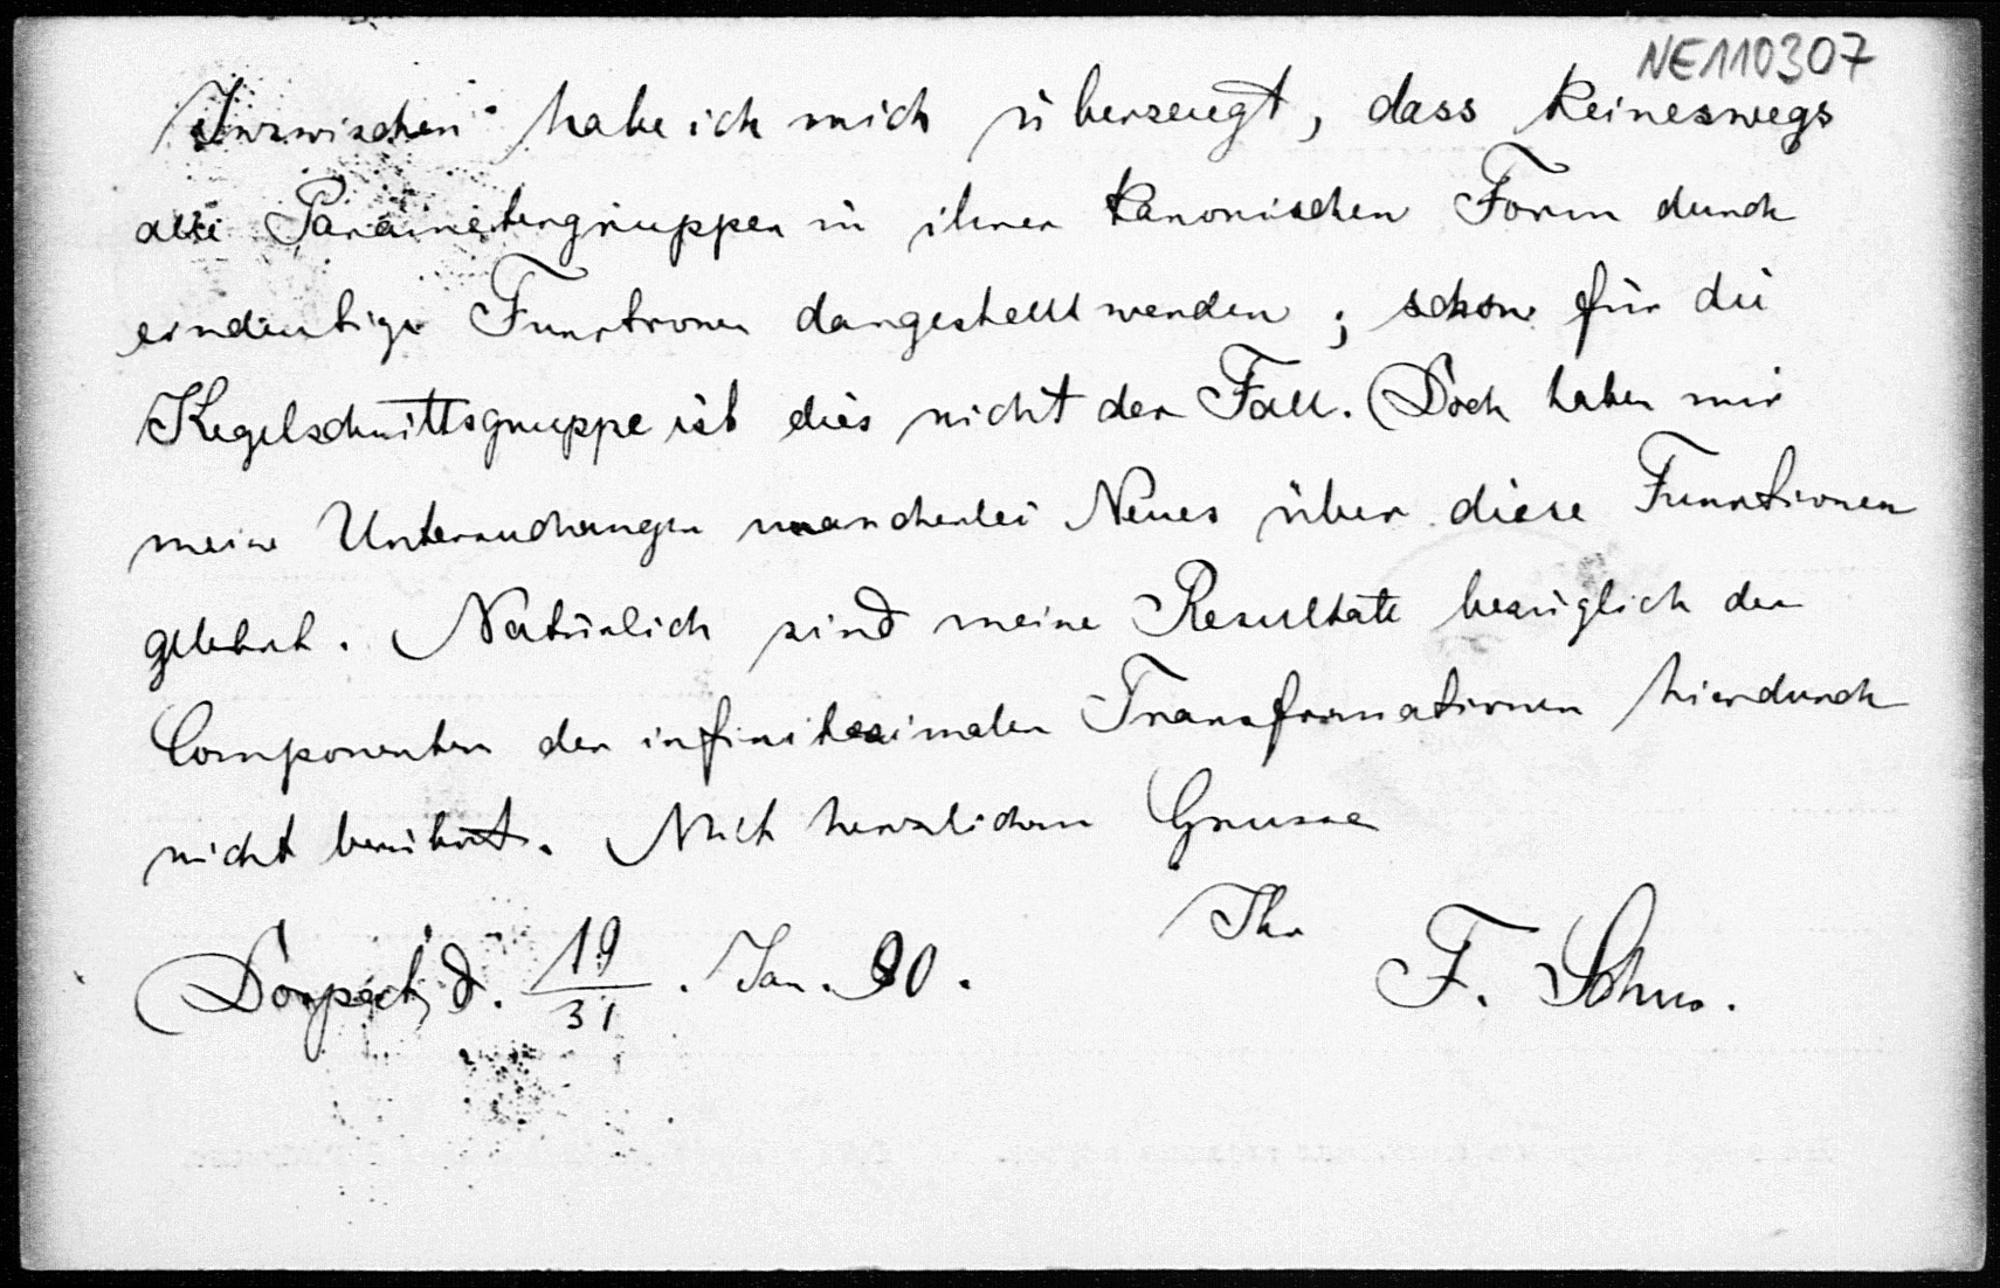 NE110307
Inzwischen habe ich mich überzeugt, dass keineswegs
alle Parametergruppen in ihrer kanonischen Form durch
eindeutige Functionen dargestellt werden; schon für die
Kegelschnittsgruppe ist dies nicht der Fall. Doch haben mir
meine Untersuchungen mancherlei Neues über diese Functionen
gelehrt. Natürlich sind meine Resultate bezüglich der
Componenten der infinitesimalen Transformationen hierdurch
nicht berührt. Mit herzlichem Grusse
Ihr
Dorpat, d. 19/31. Jan. 90. F. Schur.